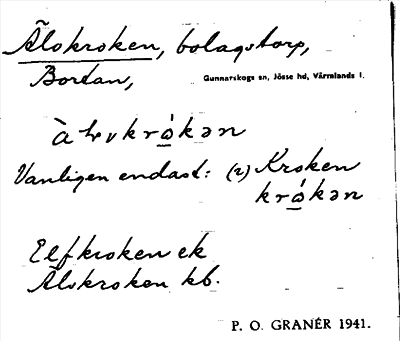 Älvkroken, bolagstorp,
Bortan,
Gunnarskogs sn, Jösse hd, Värmlands l.
krókən
Vanligen endast: (2) Kroken
krókən
Elfkroken ek
Älvkroken kb.
P. O. GRANÉR 1941.